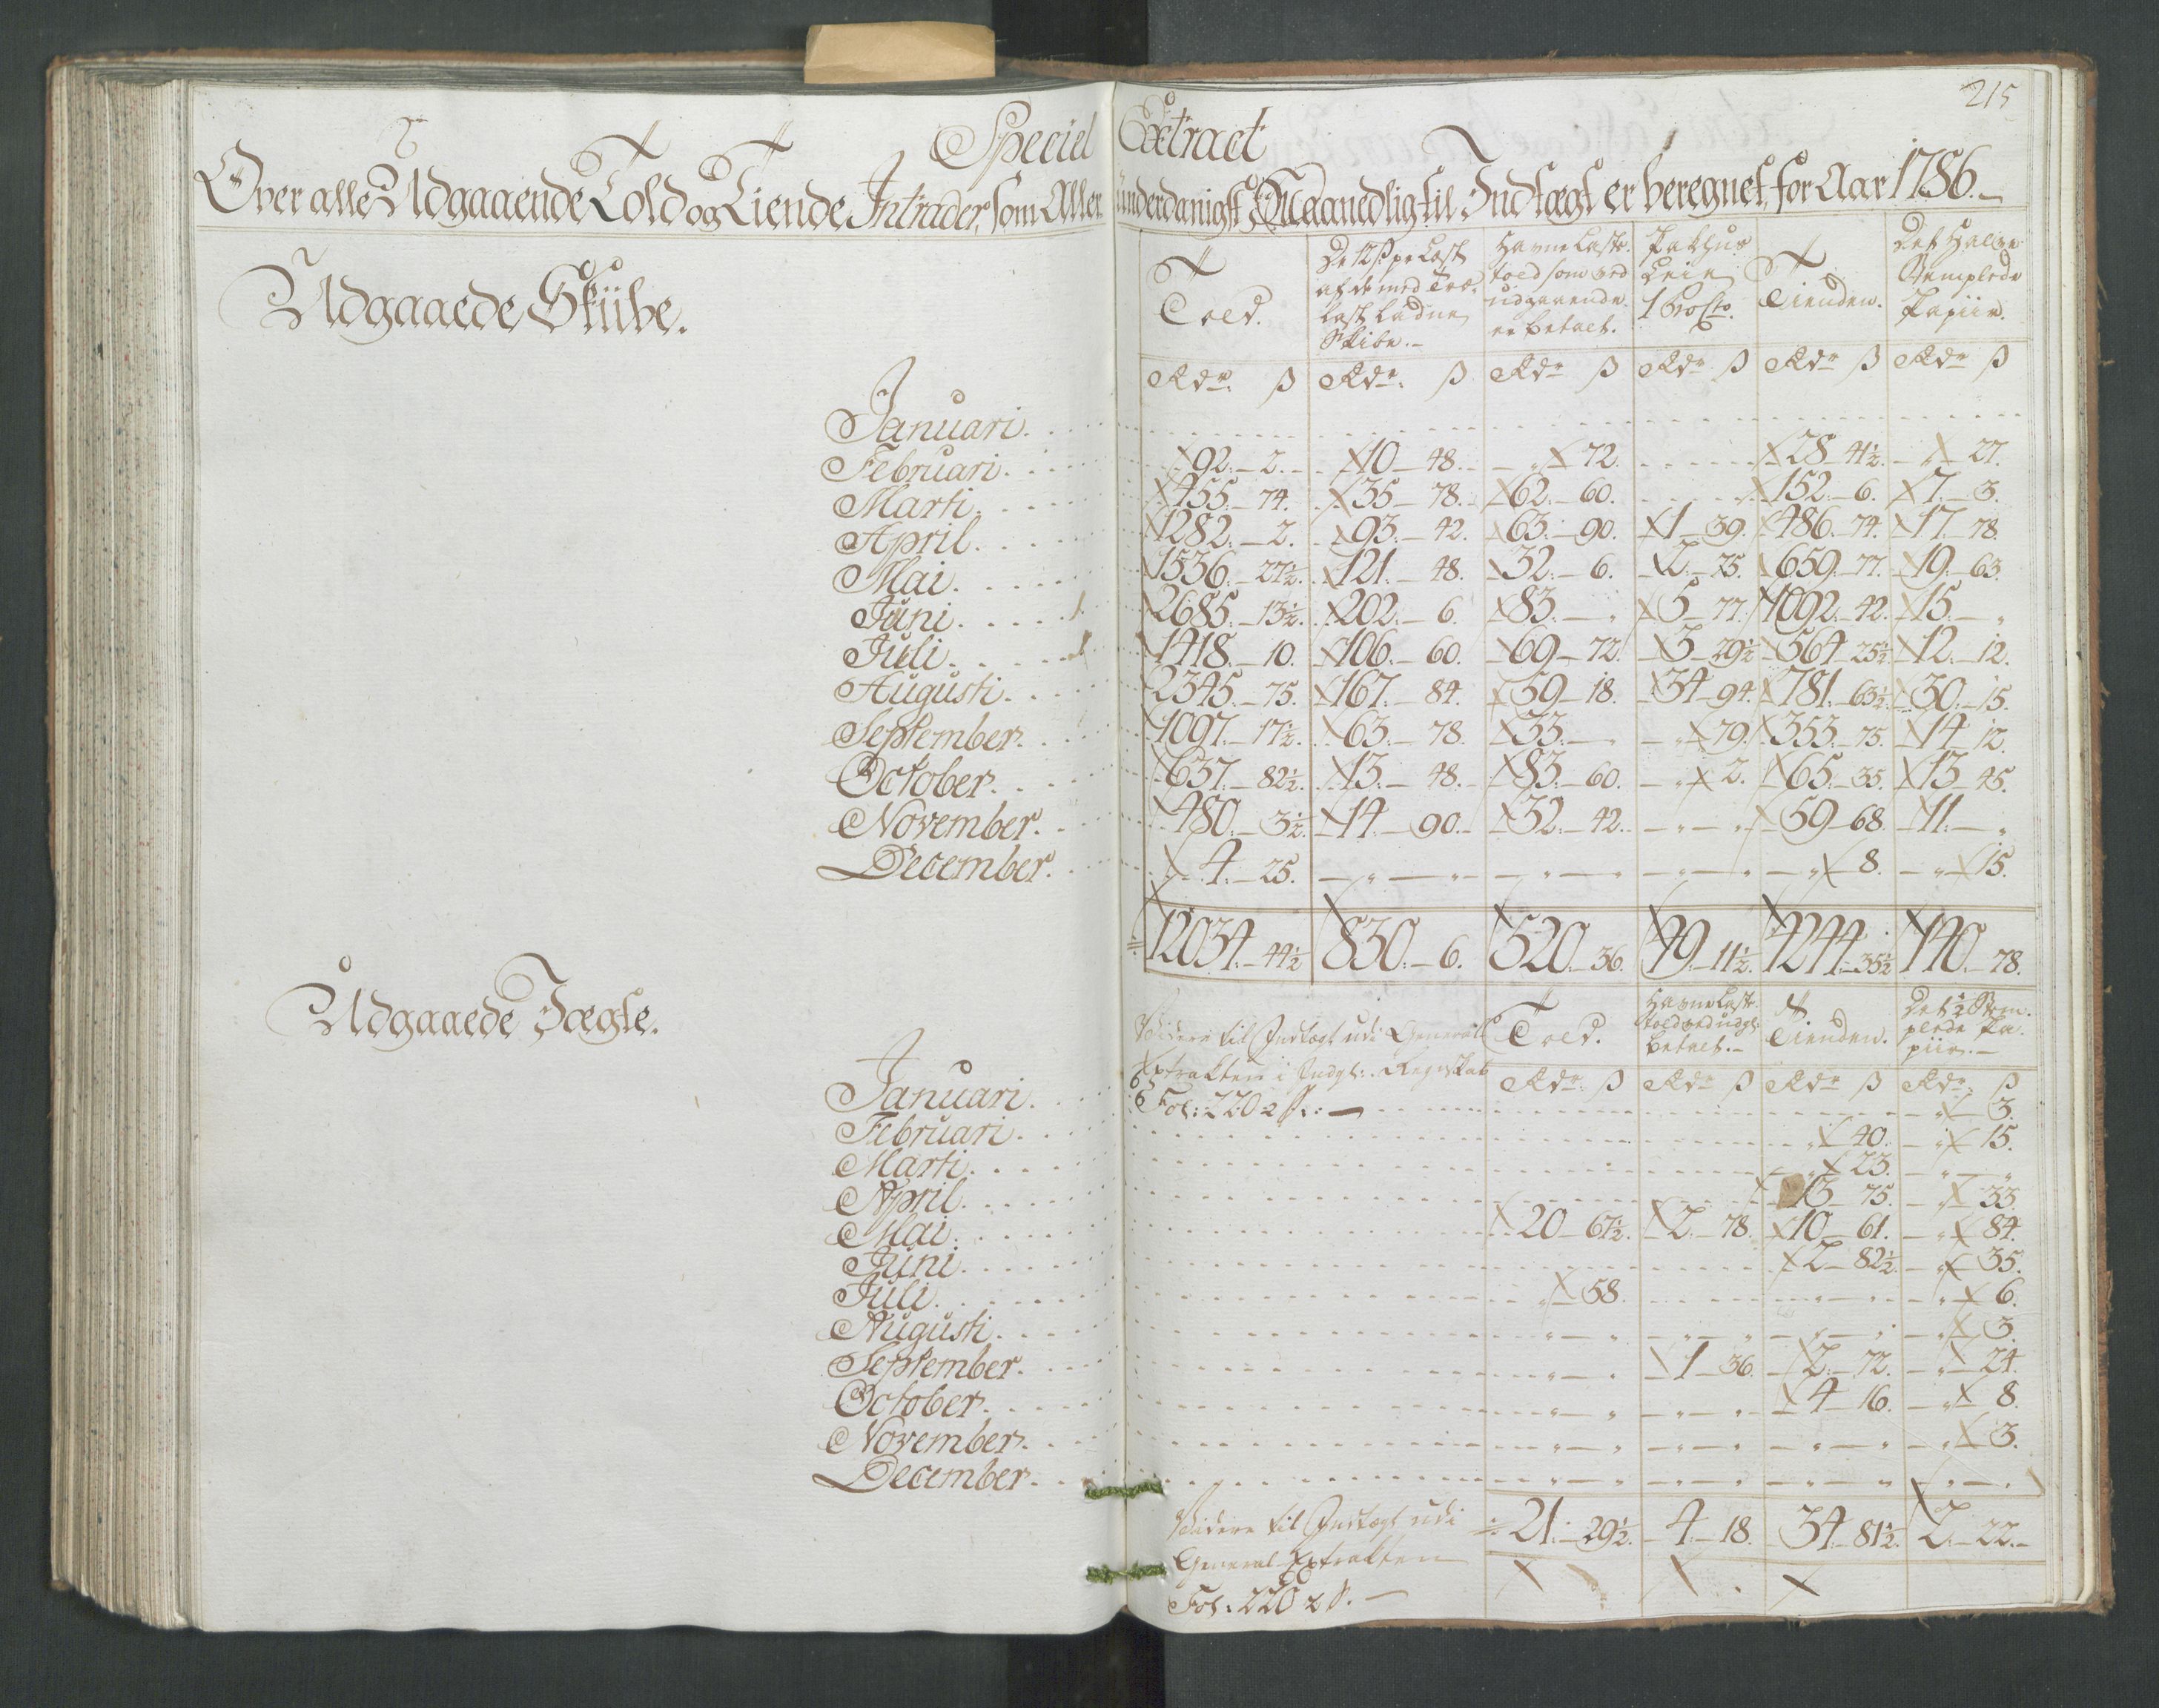 215
Special Extract
Over alle Udgaaende Told og Tiende Intrader, som Allerunderdanigst Maanedlig til Indtægt er beregnet, for Aar 1786.
Udgaaede Skibe.
Told. | De 12 ß pr Læst af de med Træ-last ladne Skibe. | Havne Læste-told som ved udgaaende er betalt. | Pakhus Leie 1 Pro Cto. | Tienden. | Det Halve Stemplede Papiir.
Rdr ß | Rdr ß | Rdr ß | Rdr ß | Rdr ß | Rdr ß
Januari.
Februari. 92. 2. | 10 48. | " 72. | | 28 41½. | " 27.
Marti. 455. 74. | 35 78. | 62. 60. | | 152. 6. | 7. 3.
April. 1282. 2. | 93. 42. | 63. 90. | 1 39. | 486. 74. | 17. 78.
Mai. 1536. 27½. | 121. 48. | 32. 6. | 2. 75. | 659. 77. | 19. 63.
Juni. 2685. 13½. | 202. 6. | 83. " | 5 77. | 1092. 42. | 15. "
Juli. 1418. 10. | 106. 60. | 69 72. | 3 29½ | 564 25½. | 12. 12.
Augusti. 2345. 75. | 167. 84. | 59 18. | 34 94. | 781. 63½. | 30. 15.
September. 1097. 17½. | 63. 78. | 33. " | " 79. | 353. 75. | 14 12.
October. 637. 82½. | 13. 48. | 83. 60. | " 2. | 65. 35. | 13 45.
November. 480. 3½. | 14. 90. | 32. 42. | " " | 59 68. | 11. "
December. 4. 25. | " " | " " | " " | " 8. | " 15.
12034. 44½ | 830. 6. | 520. 36. | 49. 11½. | 4244. 35½ | 140. 78.
Udgaaede Jægte.
Videre til Indtægt udi General
Extrakten i Indgl: Regnskab
Fol: 220 2 S.:
Told. | Havne Læste-told ved udgl: betalt. | Tienden. | Det ½ Stem-plede Pa-piir.
Rdr ß | Rdr ß | Rdr ß | Rdr ß
Januari. | | | " 3.
Februari. | | " 40. | " 15.
Marti. | | " 23. | " "
April. | | 13 75. | " 33.
Mai. 20 67½. | 2. 78. | 10 61. | " 84.
Juni. | | 2 82½. | " 35.
Juli. " 58. | | " " | " 6.
Augusti. " " | " " | " " | " 3.
September. " " | 1 36. | 2. 72. | " 24.
October. " " | " " | 4 16. | " 8.
November. " " | " " | " " | " 3.
December. " " | " " | " " | " "
Videre til Indtægt udi
General Extrakten
Fol: 220 2 S.
21. 29½. | 4. 18. | 34. 81½. | 2. 22.